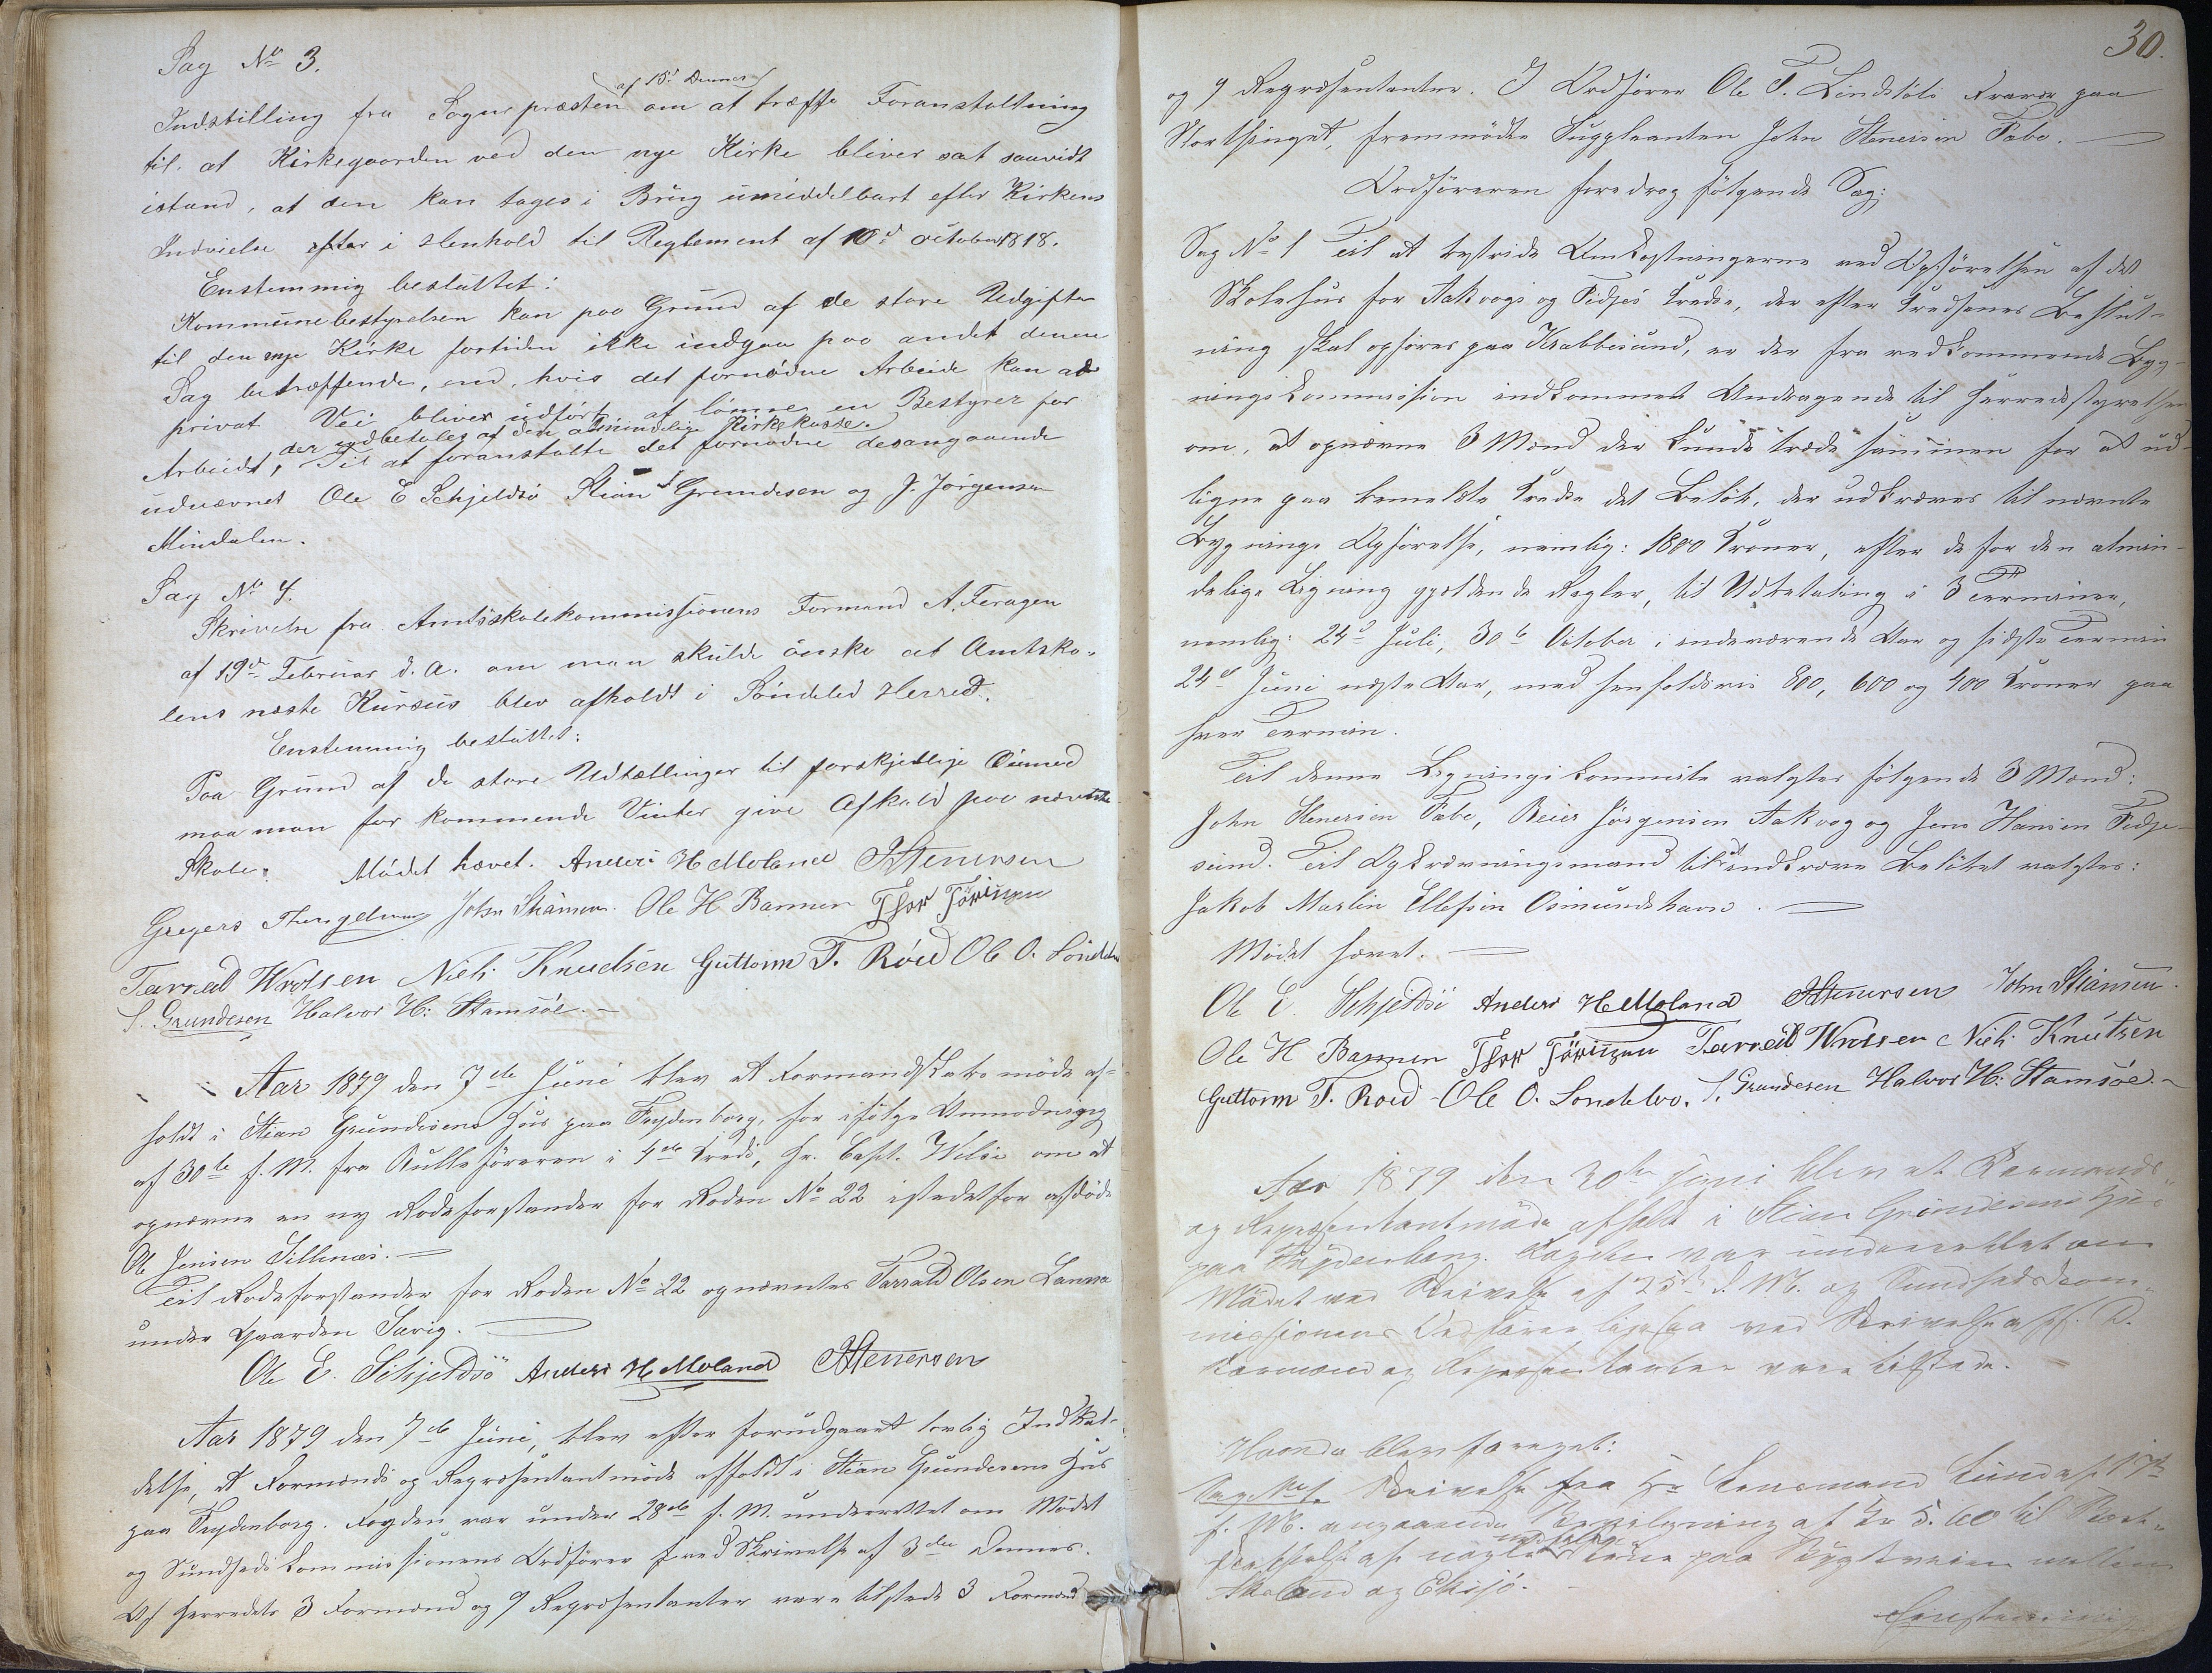 Sag No 3.
Indstilling fra Sognepræsten af 15d Dennes om at træffe Foranstaltning
til at Kirkegaarden ved den nye Kirke bliver sat saavidt
istand, at den kan tages i Brug umiddelbart efter Kirkens
Indvielse efter i Henhold til Reglement af 10d october 1818.
Enstemmig besluttet:
Kommunebestyrelsen kan paa Grund af de store Udgifter
til den nye Kirke fortiden ikke indgaa paa andet denne
Sag betræffende, end, hvis det fornødne Arbeide kan ad
privat Vei bliver udført, at lønne en Bestyrer for
der udbetales af den almindelige Kirkekasse.
Arbeidet, Til at foranstalte det fornødne desangaaende
udnævnes Ole E Schjeldsø Stian Grundesen og J. Jørgensen
Mindalen.
Sag No 4.
Skrivelse fra Amtsskolekommissionens Formand A. Feragen
af 19de Februar d. A. om man skulde ønske at Amtsko-
lens næste Kursus blev afholdt i Søndeled Herred.
Enstemmig besluttet:
Paa Grund af de store Udtællinger til forskjellige Øiemed
maa man for kommende Vinter give Afkald paa nævnte
Skole. Mødet hævet. Anders H Moland J Stenersen
Gregers John Stiansen. Ole H Barmen Thor
Tarrald Wrolsen Niels Knudsen Guttorm T. Røed Ole O. Søndebo
S. Grundesen Halvor H: Stamsøe.
Aar 1879 den 7de Juni blev et Formandskabsmøde af-
holdt i Stian Grundesens Hus paa Frydenborg, for ifølge Anmodning
af 30te f. M. fra Rulleføreren i 4de Kreds, Hr. Capt. Wilse om at
opnævne en ny Rodeforstander for Roden No 22 istedetfor afdøde
Ole Jensen Sillenæs.
Til Rodeforstander for Roden No 22 opnævntes Tarrald Olsen Lanna
under Gaarden Sævig.
Ole E. Schjeldsø Anders H Moland J Stenersen
Aar 1879 den 7de Juni, blev efter forudgaaet lovlig Indkal-
delse, et Formands og Repræsentantmøde afholdt i Stian Grundesens Hus
paa Frydenborg. Fogden var under 28de f. M. underrettet om Mødet
og Sundhedskommissionens Ordfører ved Skrivelse af 3die Dennes.
Af Herredets 3 Formænd og 9 Repræsentanter vare tilstede 3 Formænd
30.
og 9 Repræsentanter. I Ordfører Ole T. Lindstøls Fravær paa
Storthinget, fremmødte Suppleanten John Stenersen Fabo.
Ordføreren foredrog følgende Sag:
Sag No 1 Til at bestride Omkostningerne ved Opførelsen af det
Skolehus for Aakvogs og Fidjes Kredse, der efter Kredsenes Beslut-
ning skal opføres paa Krabbesund, er der fra vedkommende Byg-
ningskommission indkommet Andragende til Herredsstyrelsen
om, at opnævne 3 Mænd der kunde træde sammen for at ud-
ligne paa bemeldte Kredse det Beløb, der udkræves til nævnte
Bygnings Opførelse, nemlig: 1800 Kroner, efter de for den almin-
delige Ligning gjældende Regler, til Udbetaling i 3 Terminer,
nemlig: 24d Juli, 30te October i indeværende Aar og sidste Termin
24d Juni næste Aar, med henholdsvis 800, 600 og 400 Kroner paa
hver Termin.
Til denne Ligningskommite valgtes følgende 3 Mænd:
John Stenersen Fabo, Reier Jørgensen Aakvog og Jens Hansen Fidje-
sund. Til Opkrævningsmand til at indkræve Beløbet valgtes:
Jakob Martin Ellefsen Osmundshavn.
Mødet hævet.
Ole E. Schjeldsø Anders H Moland J Stenersen John Stiansen.
Ole H Barmen Thor Tarrald Wrolsen Niels Knutsen
Guttorm T. Roed Ole O. Sondebo. S. Grundesen Halvor H: Stamsøe.
Aar 1879 den 30te Juni blev et Formands-
og Repræsentantmøde afholdt i Stian Grundesens Hus
paa Frydenborg. Fogden var underrettet om
Mødet ved Skrivelse af 25de d. M. og Sundhedskom-
missionens Ordfører ligesaa ved Skrivelse af s. D.
Formænd og Repræsentanter vare tilstede.
Hvorda blev foretaget:
Sag No 1. Skrivelse fra Hr Lensmand Lund af 17de
f. M. angaaende Bevilgning af Kr 5.60 til
af nogle paa Bygdeveien mellem
Akland og Eksjø.
Enstemmig